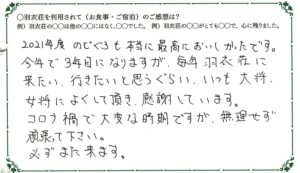 ○羽衣荘を利用されて(お食事・ご宿泊)のご感想は?
例)羽衣荘の○○は他の○○にはなく、○○でした。 例)羽衣荘の○○がとても○○で、心に残りました。
2021年度 のどぐろも本当に最高においしかったです。
今年で3年目になりますが、毎年羽衣荘に
来たい、行きたいと思うぐらい、いつも大将、
女将によくして頂き、感謝しています。
コロナ禍で大変な時期ですが、無理せず
頑張って下さい。
必ずまた来ます。